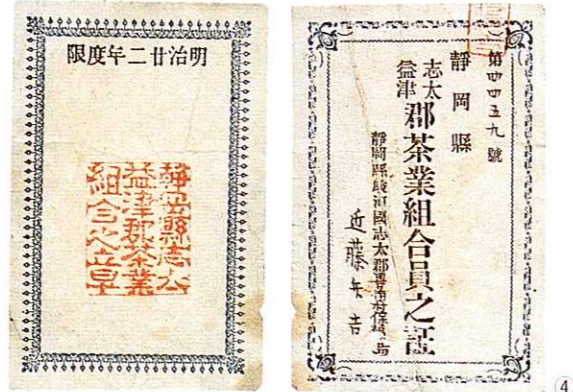 明治廿二年度限
靜岡縣志太
益津郡茶業
組合之章
第四四五九號
靜岡縣
志太
益津
郡茶業組合員之証
靜岡縣駿河國志太郡豊田村保福島
近藤 吉
④